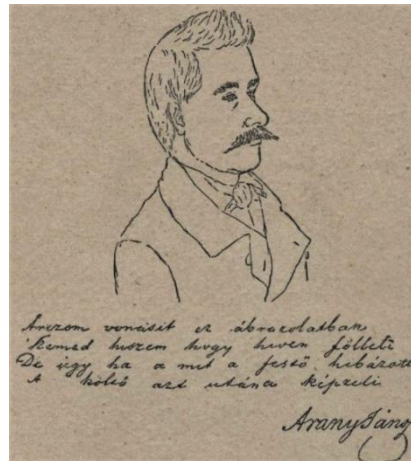 Arczom vonásit ez ábrázolatban
Szemed hiszem hogy híven fölleli
De úgy ha a mit a festő hibázott
A költő azt utána képzeli
Arany János